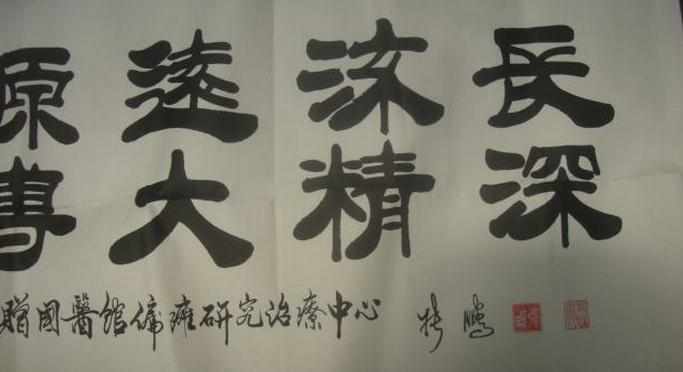 源遠流長
博大精深
贈國醫館偏癱研究治療中心 鵬